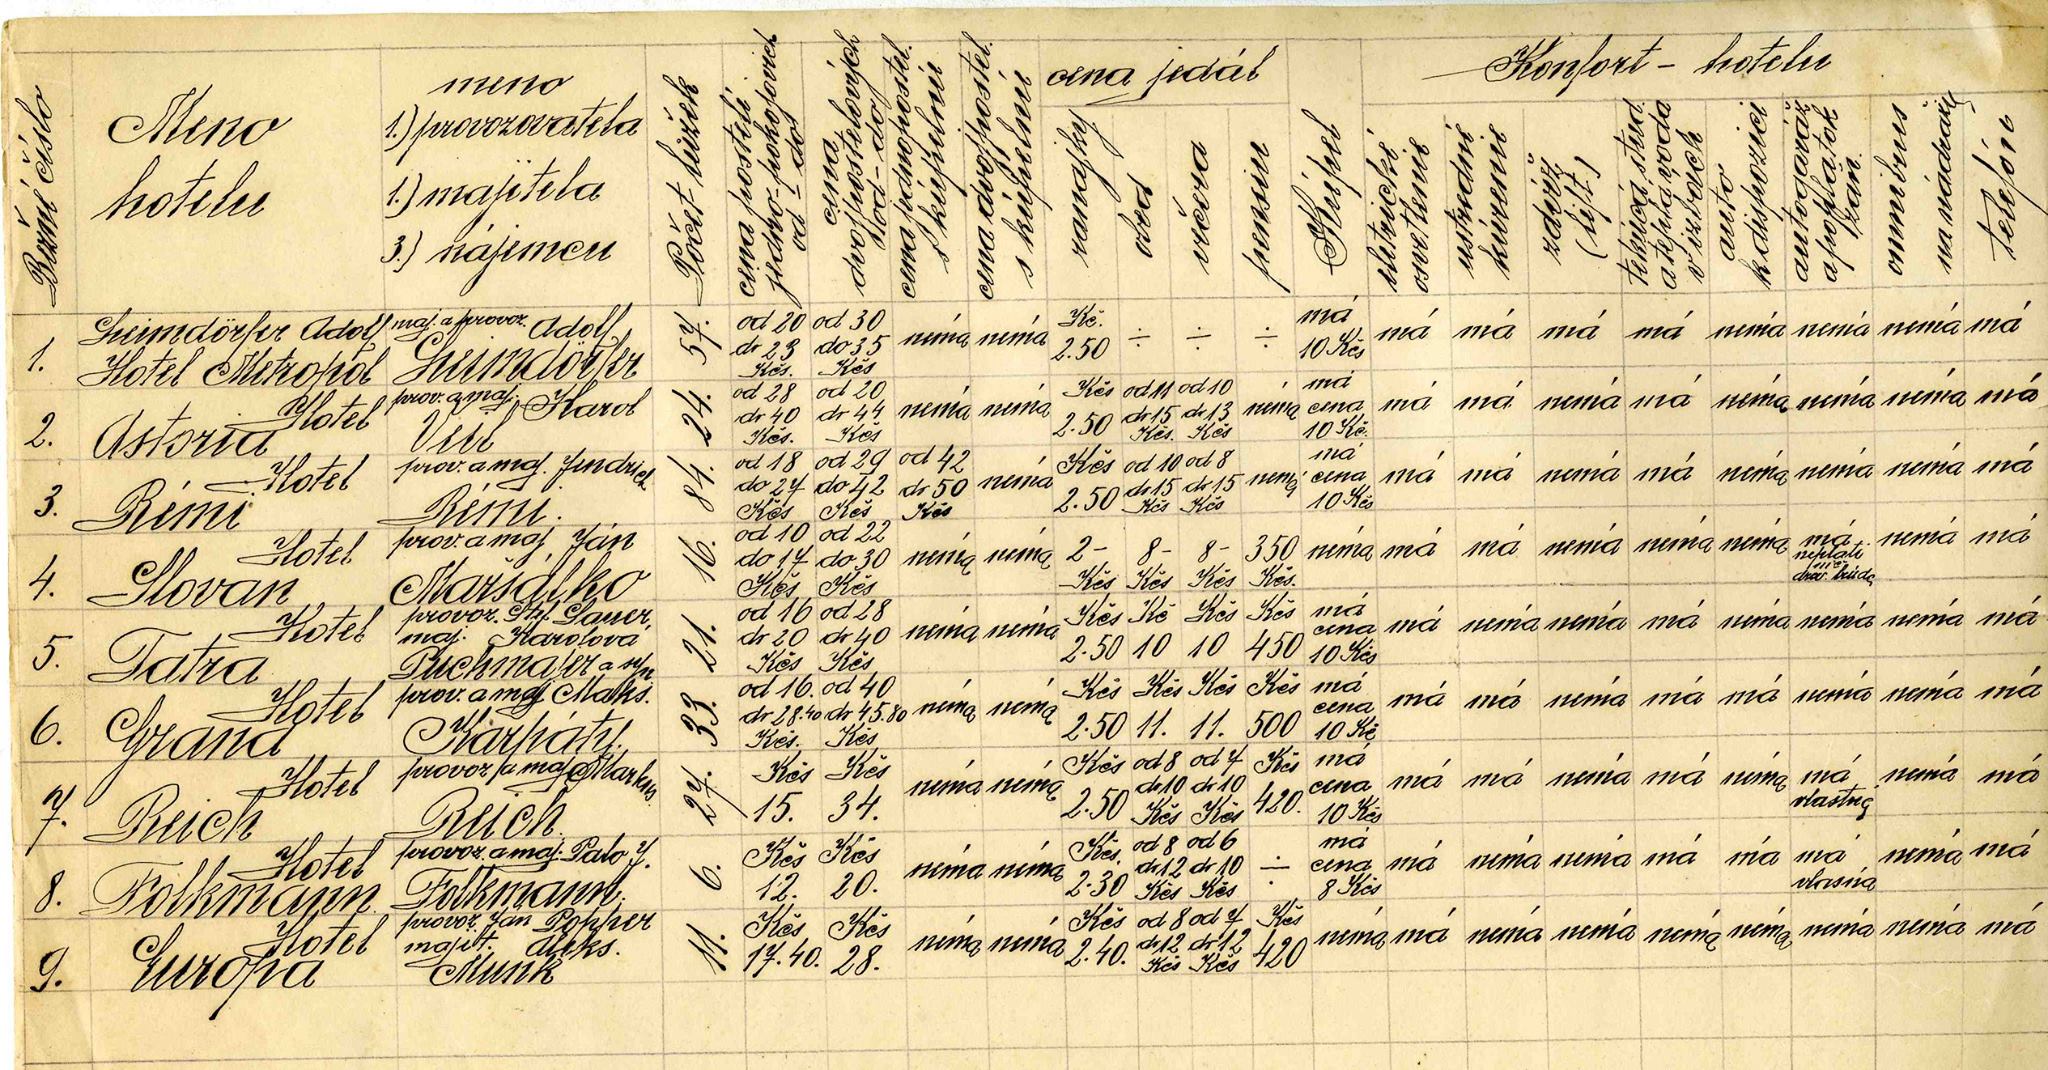 Bežné číslo
Meno
hotelu
meno
1.) provozovatela
1.) majitela
3.) nájemcu
Počet lužiek
cena postelí
jedno-pokojových
od - do
cena
dvojpostelových
od - do
cena jednopostel.
s kúpelnú
cena dvojpostel.
s kúpelnú
cena jedál
ranajky
obed
večera
pensiu
Kúpel
Konfort - hotelu
eletrické
osvetlenie
ustredné
kúrenie
zdviž
(lift)
tekúcá stud.
a teplá voda
v izbách
auto
k dispozici
autogaráž
a poplatok
zan.
omnibus
na nádraží
telefón
1. Heimdörfer Adolf Hotel Metropol maj. a provoz. Adolf Heimdörfer 57. od 20 do 23 Kčs. od 30 do 35 Kčs nemá nemá Kč. 2.50 ÷ ÷ ÷ má 10 Kčs má má má má nemá nemá nemá má
2. Hotel Astoria prov. a maj. Karol Veil 24. od 28 do 40 Kčs. od 20 do 44 Kčs nemá nemá Kčs 2.50 od 11 do 15 Kčs. od 10 do 13 Kčs nemá má cena 10 Kč. má má nemá má nemá nemá nemá má
3. Hotel Rémi prov. a maj. Jindrich Rémi. 84. od 18 do 27 Kčs od 29 do 42 Kčs od 42 do 50 Kčs nemá Kčs 2.50 od 10 do 15 Kčs od 8 do 15 Kčs nemá má cena 10 Kčs má má nemá má nemá nemá nemá má
4. Hotel Slovan prov. a maj. Ján Maršalko 16. od 10 do 17 Kčs od 22 do 30 Kčs nemá nemá 2- Kčs 8- Kčs 8- Kčs 350 Kčs. nemá má má nemá nemá nemá má neplatí nemá má
5. Hotel Tatra provoz. Sauer, maj. Karolova Puchmajer a syn 21. od 16 do 20 Kčs od 28 do 40 Kčs nemá nemá Kčs 2.50 Kč 10 Kčs 10 Kčs 450 má cena 10 Kčs má nemá nemá má nemá nemá nemá má
6. Hotel Grand prov. a maj. Maks. Kárpáty. 33. od 16. do 28.40 Kčs. od 40 do 45.80 Kčs nemá nemá Kčs 2.50 Kčs 11. Kčs 11. Kčs 500 má cena 10 Kč má má nemá má má nemá nemá má
7. Hotel Reich provoz. a maj. Markus Reich. 27. Kčs 15. Kčs 34. nemá nemá Kčs 2.50 od 8 do 10 Kčs od 7 do 10 Kčs Kčs 420. má cena 10 Kčs má má nemá má nemá má vlastná nemá má
8. Hotel Folkmann provoz. a maj. Folkmann. 6. Kčs 12. Kčs 20. nemá nemá Kčs. 2.30 od 8 do 12 Kčs od 6 do 10 Kčs ÷ má cena 8 Kčs má nemá nemá má má má vlasná nemá má
9. Hotel Europa provoz. Ján Popper majit. Aleks. Munk 11. Kčs 17.40. Kčs 28. nemá nemá Kčs 2.40. od 8 do 12 Kčs od 7 do 12 Kčs Kčs 420 nemá má nemá nemá nemá nemá nemá nemá má